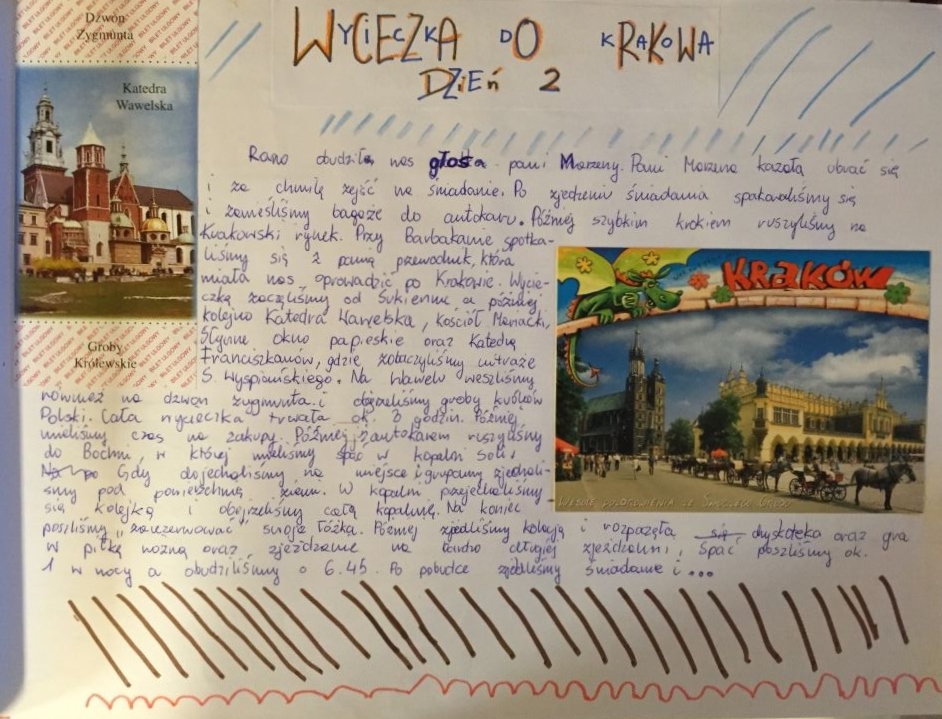 Dzwon
Zygmunta
Katedra
Wawelska
Groby
Królewskie
WYCIECZKA DO KRAKOWA
DZIEń 2
Rano obudziła nas głosa pani Marzeny. Pani Marzena kazała ubrać się
i za chwilę zejść na śniadanie. Po zjedzeniu śniadania spakowaliśmy się
i zanieśliśmy bagaże do autokaru. Później szybkim krokiem ruszyliśmy na
Krakowski rynek. Przy Barbakanie spotka-
liśmy się z panią przewodnik, która
miała nas oprowadzić po Krakowie. Wycie-
czkę zaczęliśmy od Sukiennic a później
kolejno Katedra Wawelska, kościół Mariacki,
Słynne okno papieskie oraz Katedrę
Franciszkanów, gdzie zobaczyliśmy witraże
S. Wyspiańskiego. Na Wawelu weszliśmy
również na dzwon zygmunta i obejrzeliśmy groby królów
Polski. Cała wycieczka trwała ok. 3 godzin. Później
mieliśmy czas na zakupy. Później autokarem ruszyliśmy
do Bochni, w której mieliśmy spać w kopalni soli.
Gdy dojechaliśmy na miejsce i grupami zjechali-
śmy pod powierzchnię ziemi. W kopalni przejechaliśmy
się kolejką i obejrzeliśmy całą kopalnię. Na koniec
poszliśmy "zarezerwować" swoje łóżka. Później zjedliśmy kolację i rozpaczęła się dyskoteka oraz gra
w piłkę nożną oraz zjeżdżanie na bardzo długiej zjeżdżalni. Spać poszliśmy ok.
1 w nocy a obudziliśmy o 6.45. Po pobudce zjedliśmy śniadanie i ...
KRAKÓW